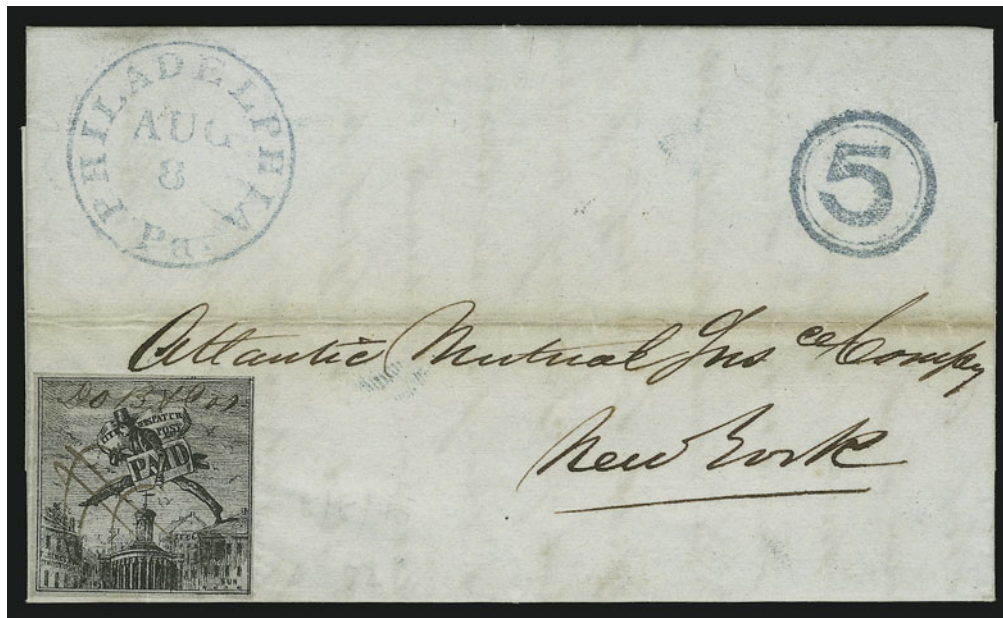 PHILADELPHIA Pa.
AUG
8
5
Atlantic Mutual Insce Compy
New York
CITY DESPATCH
POST
PAID
SUN